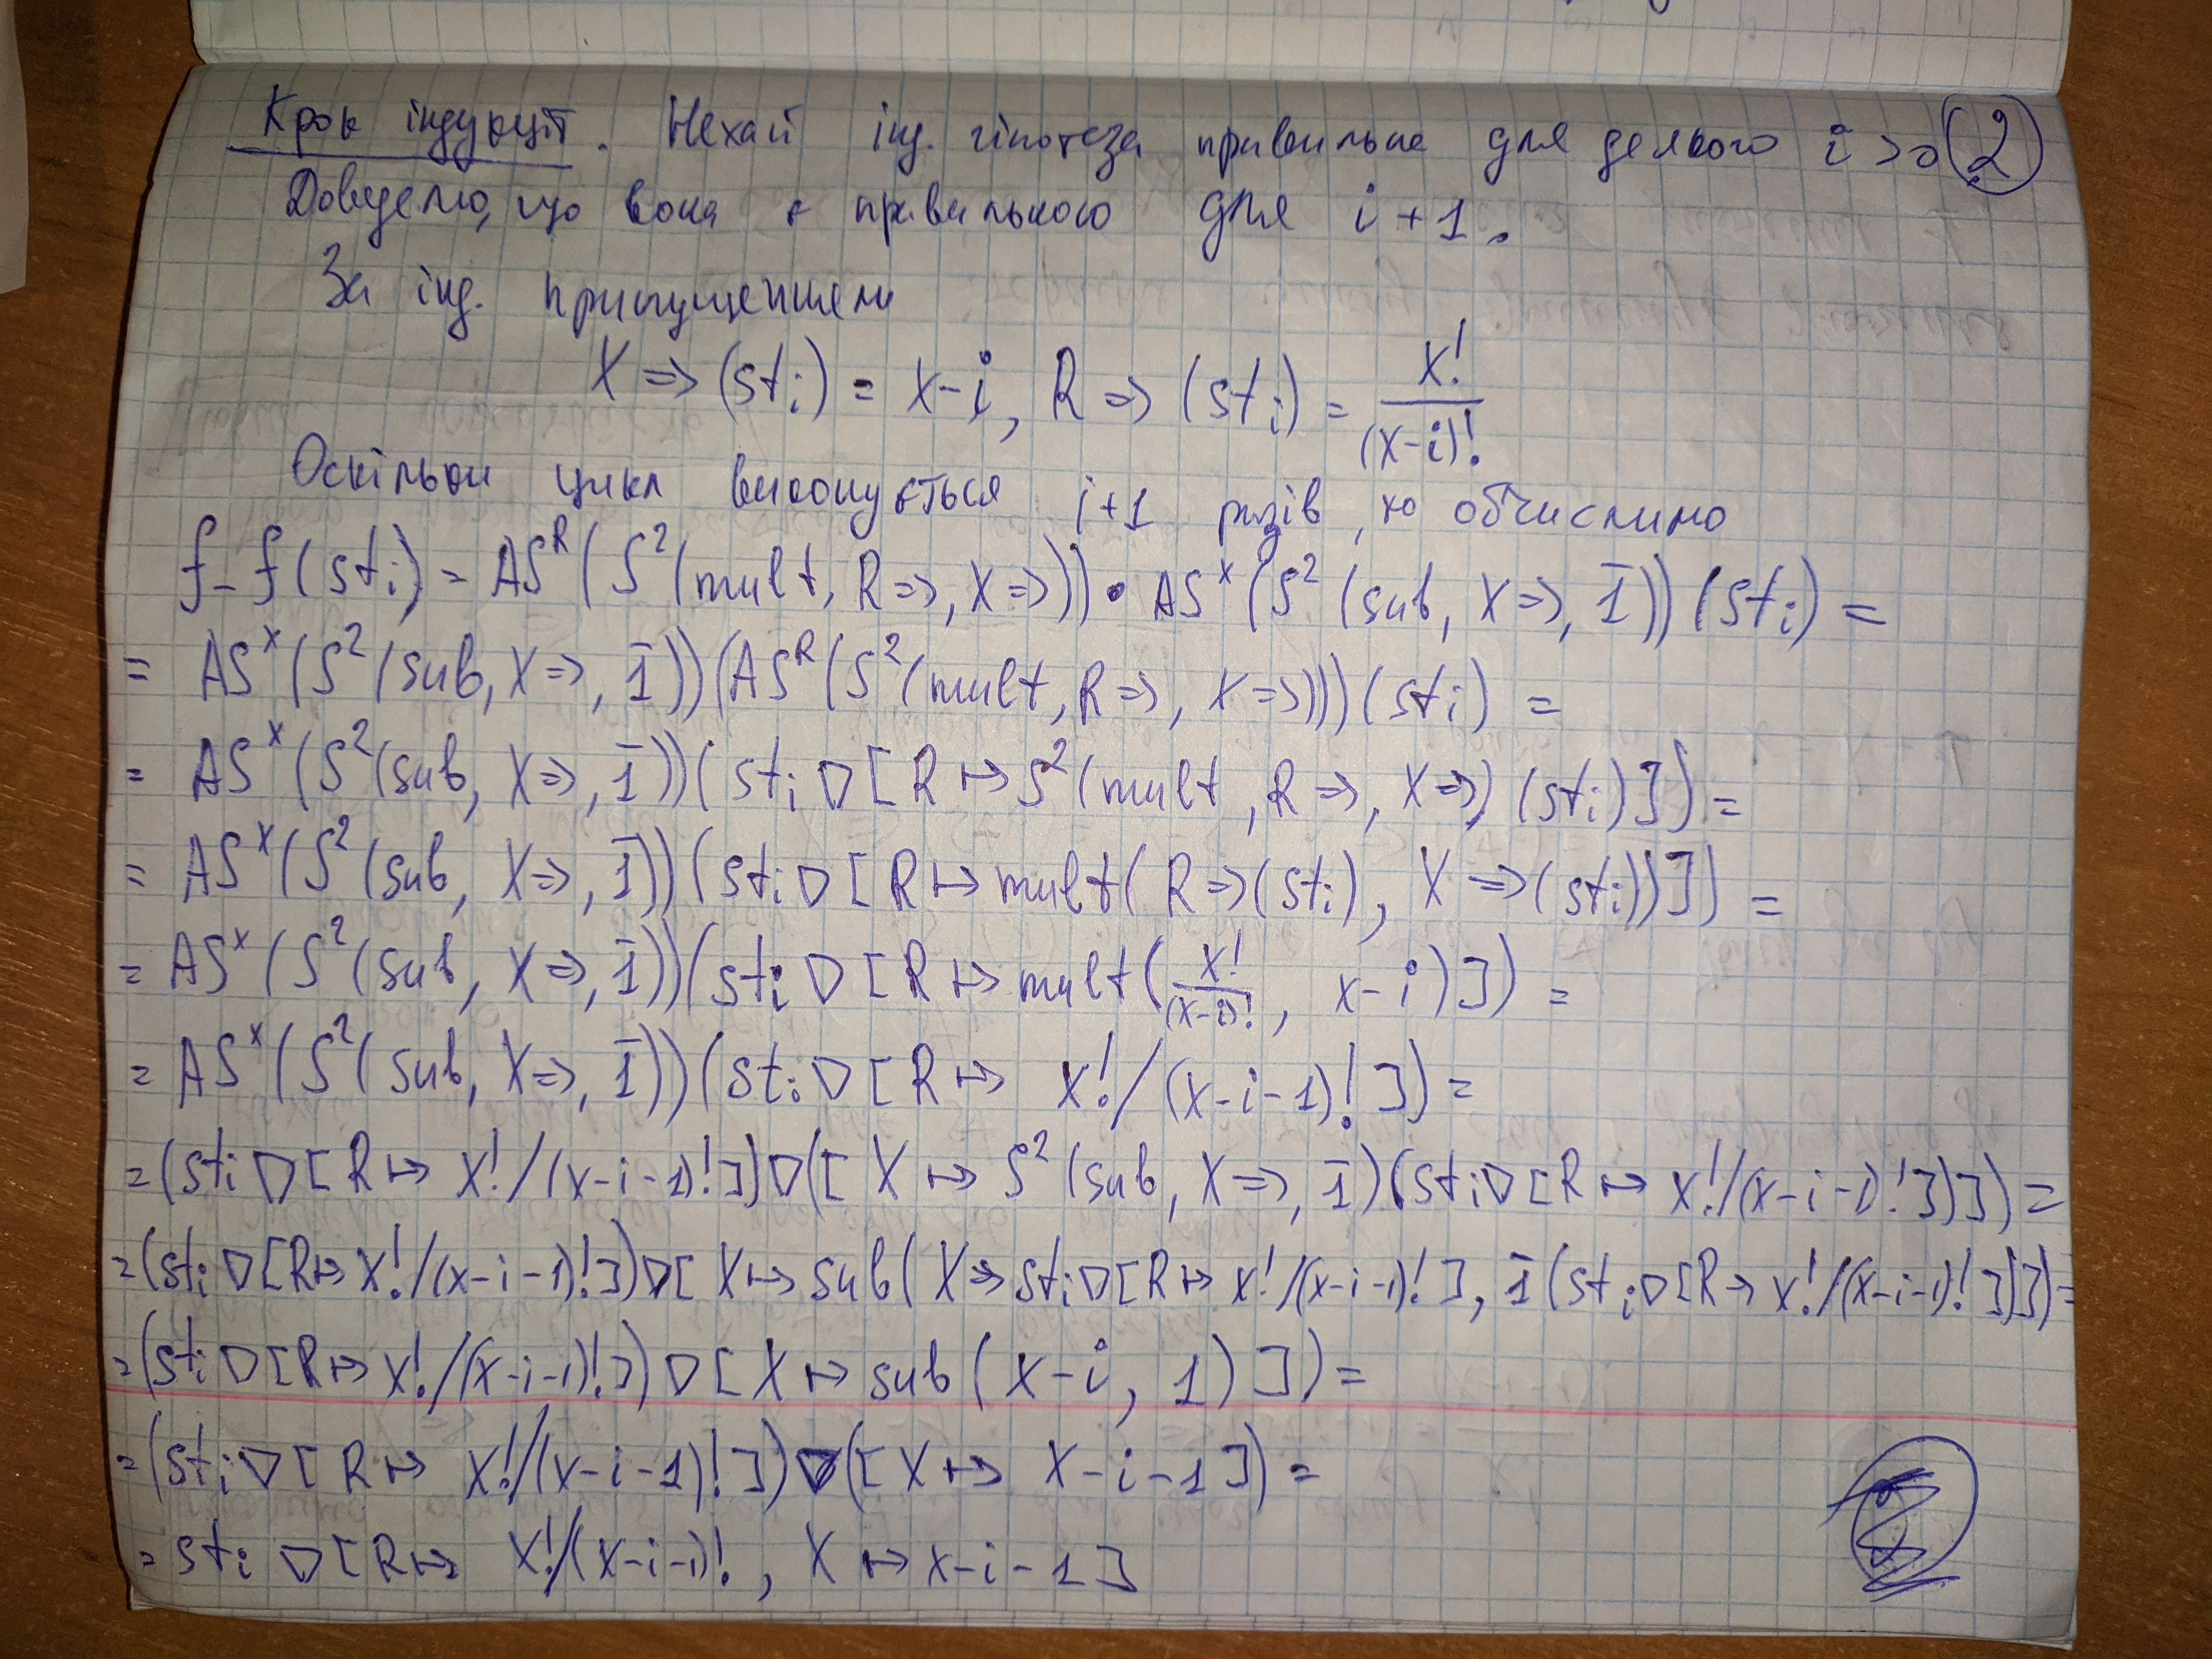 Крок індукції. Нехай інд. гіпотеза правильна для деякого i > 0 2
Доведемо, що вона є правильною для i + 1.
За інд. припущенням
X ⇒ (st_i) = x-i, R ⇒ (st_i) = x!/(x-i)!
Оскільки цикл виконується i+1 разів, то обчислимо
f_f(st_i) = AS^R(S^2(mult, R⇒, X⇒)) • AS^X(S^2(sub, X⇒, 1̅))(st_i) =
= AS^X(S^2(sub, X⇒, 1̅))(AS^R(S^2(mult, R⇒, X⇒)))(st_i) =
= AS^X(S^2(sub, X⇒, 1̅))(st_i ∇ [R ↦ S^2(mult, R⇒, X⇒)(st_i)]) =
= AS^X(S^2(sub, X⇒, 1̅))(st_i ∇ [R ↦ mult(R⇒(st_i), X⇒(st_i))]) =
= AS^X(S^2(sub, X⇒, 1̅))(st_i ∇ [R ↦ mult(x!/(x-i)!, x-i)]) =
= AS^X(S^2(sub, X⇒, 1̅))(st_i ∇ [R ↦ x!/(x-i-1)!]) =
= (st_i ∇ [R ↦ x!/(x-i-1)!]) ∇ ([X ↦ S^2(sub, X⇒, 1̅)(st_i ∇ [R ↦ x!/(x-i-1)!])]) =
= (st_i ∇ [R ↦ x!/(x-i-1)!]) ∇ [X ↦ sub(X⇒ st_i ∇ [R ↦ x!/(x-i-1)!], 1̅(st_i ∇ [R → x!/(x-i-1)!])]) =
= (st_i ∇ [R ↦ x!/(x-i-1)!]) ∇ [X ↦ sub(x-i, 1)]) =
= (st_i ∇ [R ↦ x!/(x-i-1)!]) ∇ ([X ↦ x-i-1]) =
= st_i ∇ [R ↦ x!/(x-i-1)!, X ↦ x-i-1]